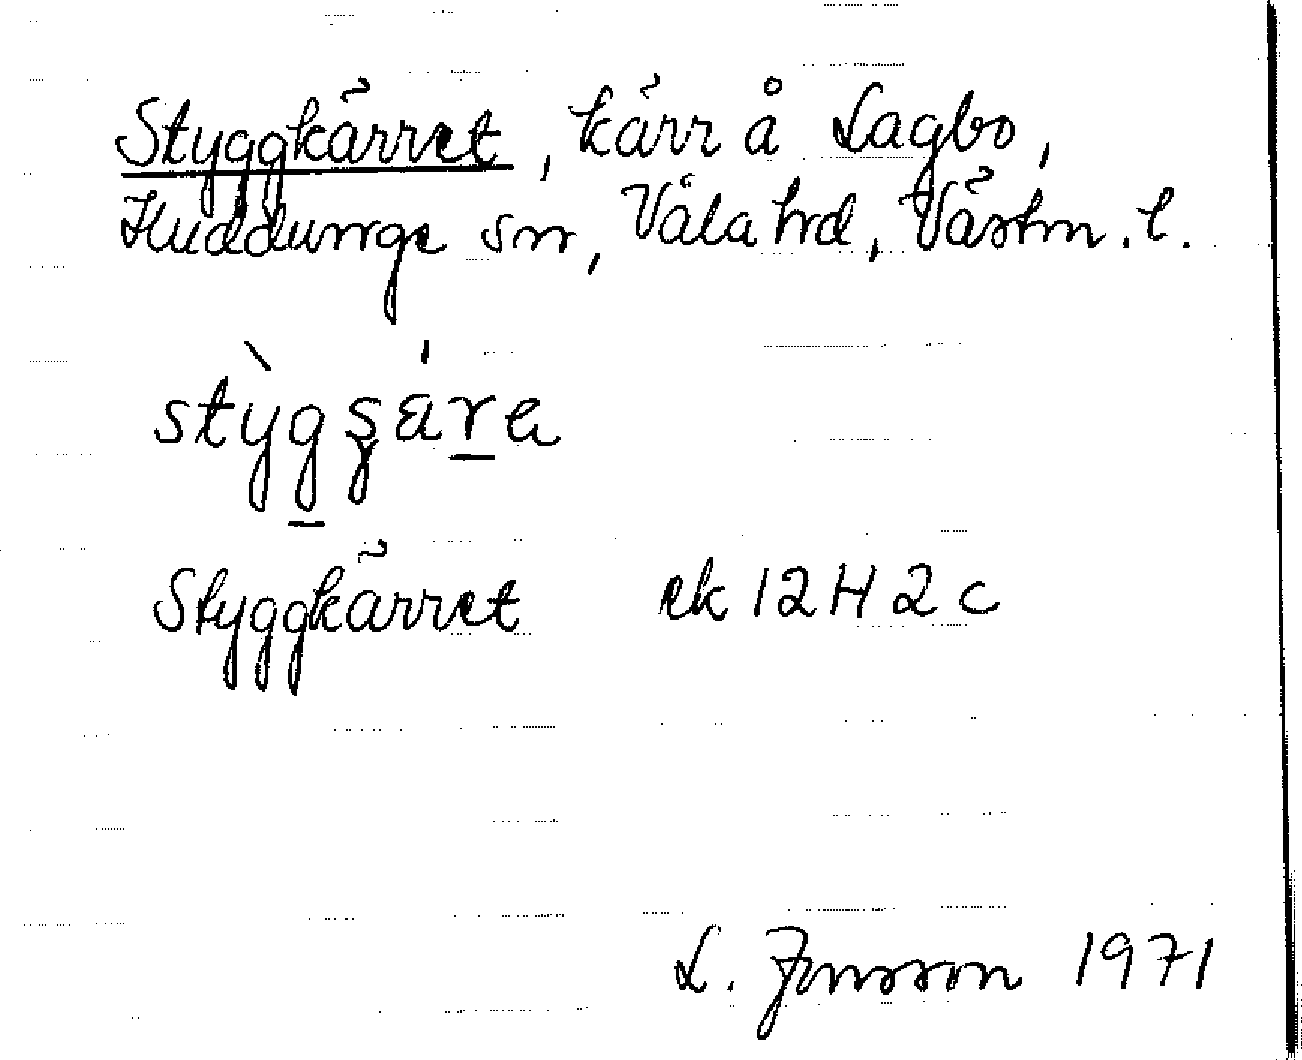 Styggkärret, kärr å Lagbo,
Huddunge sn, Våla hd, Västm. l.
stỳgʂára
Styggkärret ek 12H2c
L. Jonsson 1971